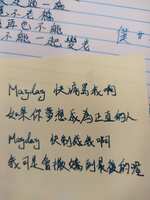 再也不能
不能一起變老
Mayday 快痛罵我啊
如果你夢想成為正直的人
Mayday 快制裁我啊
我可是會撒嬌到最後的